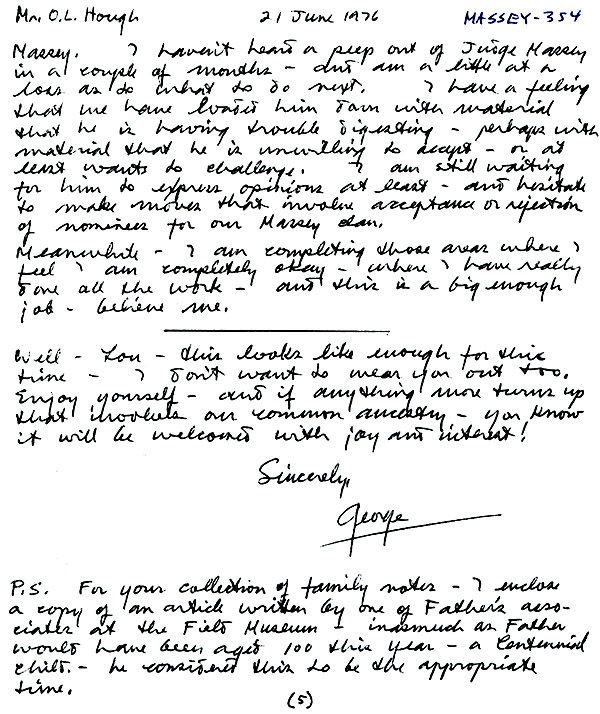 Mr. O.L. Hough 21 June 1976 MASSEY-354
Massey. I haven't heard a peep out of Judge Massey
in a couple of months - and am a little at a
loss as to what to do next. I have a feeling
that we have loaded him down with material
that he is having trouble digesting - perhaps with
material that he is unwilling to accept - or at
least wants to challenge. I am still waiting
for him to express opinions at least - and hesitate
to make moves that involve acceptance or rejection
of nominees for our Massey clan.
Meanwhile - I am completing those areas where I
feel I am completely okay - where I have really
done all the work - and this is a big enough
job - believe me.
Well - Lou - this looks like enough for this
time - I don't want to wear you out too.
Enjoy yourself - and if anything more turns up
that involves our common ancestry - you know
it will be welcomed with joy and interest!
Sincerely,
George
P.S. For your collection of family notes - I enclose
a copy of an article written by one of Father's asso-
ciates at the Field Museum - inasmuch as Father
would have been aged 100 this year - a Centennial
child. - he considered this to be the appropriate
time.
(5)